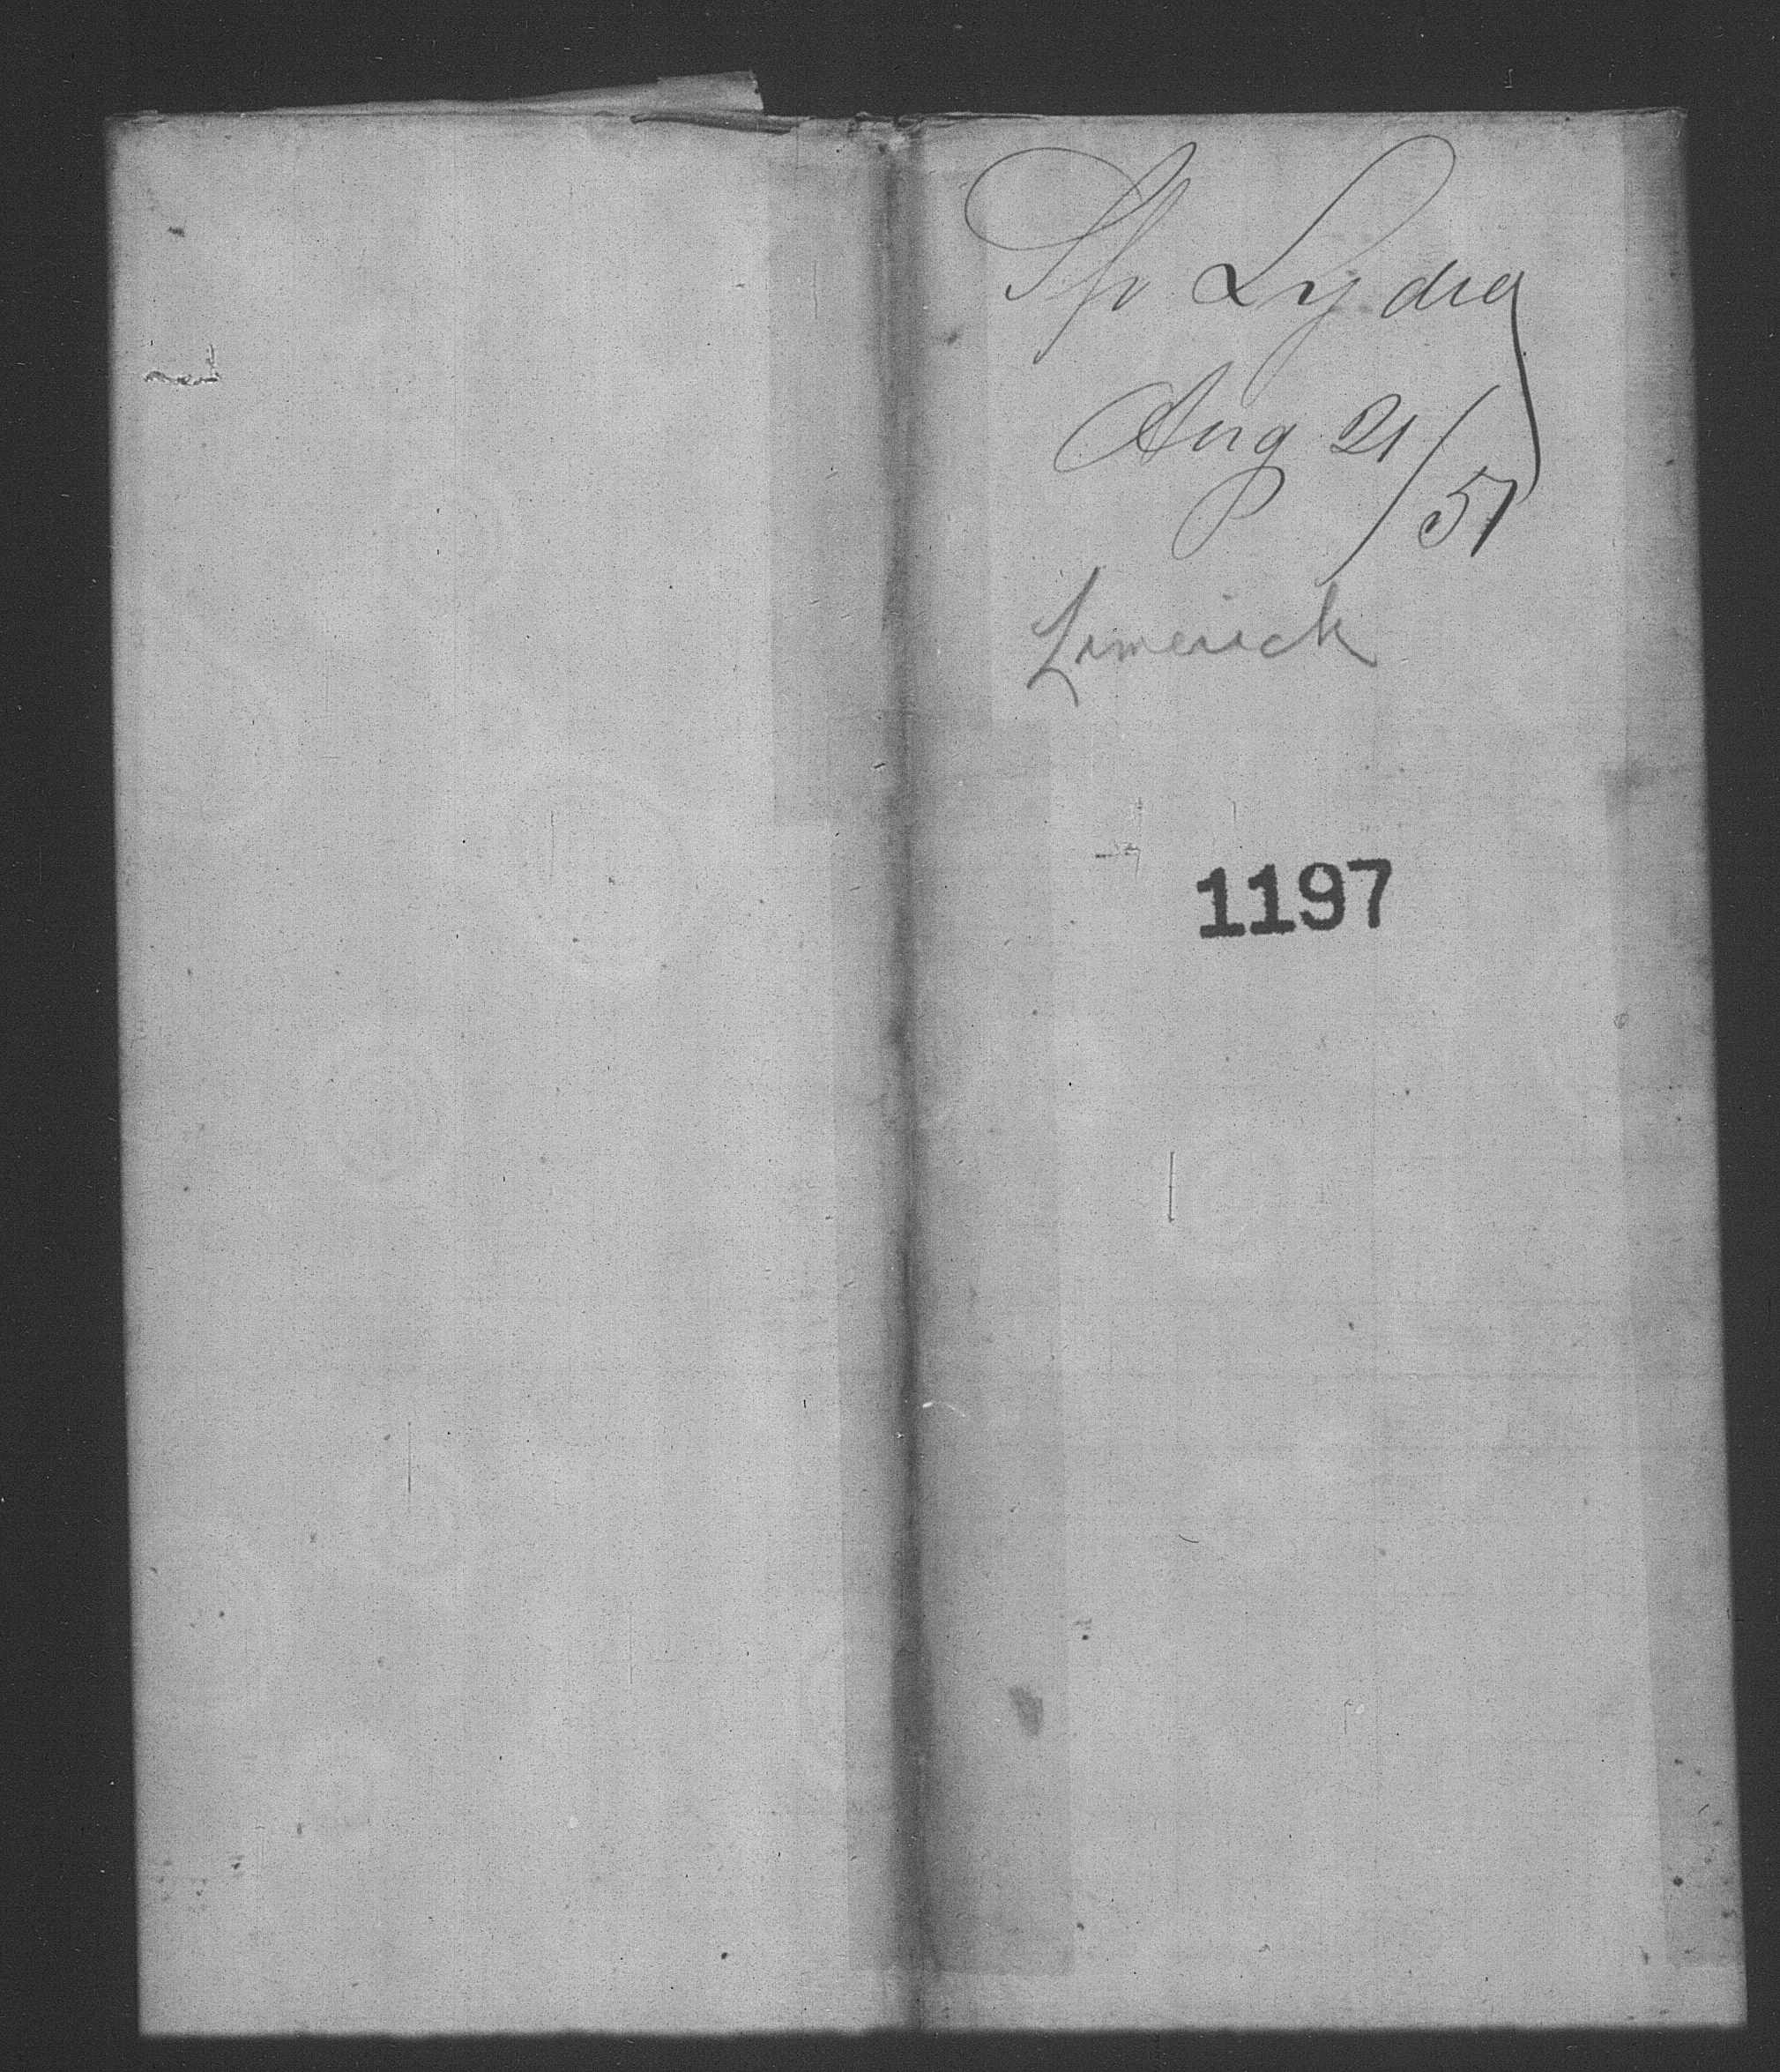 Sp Lydia
Aug 21/51
Limerick
1197